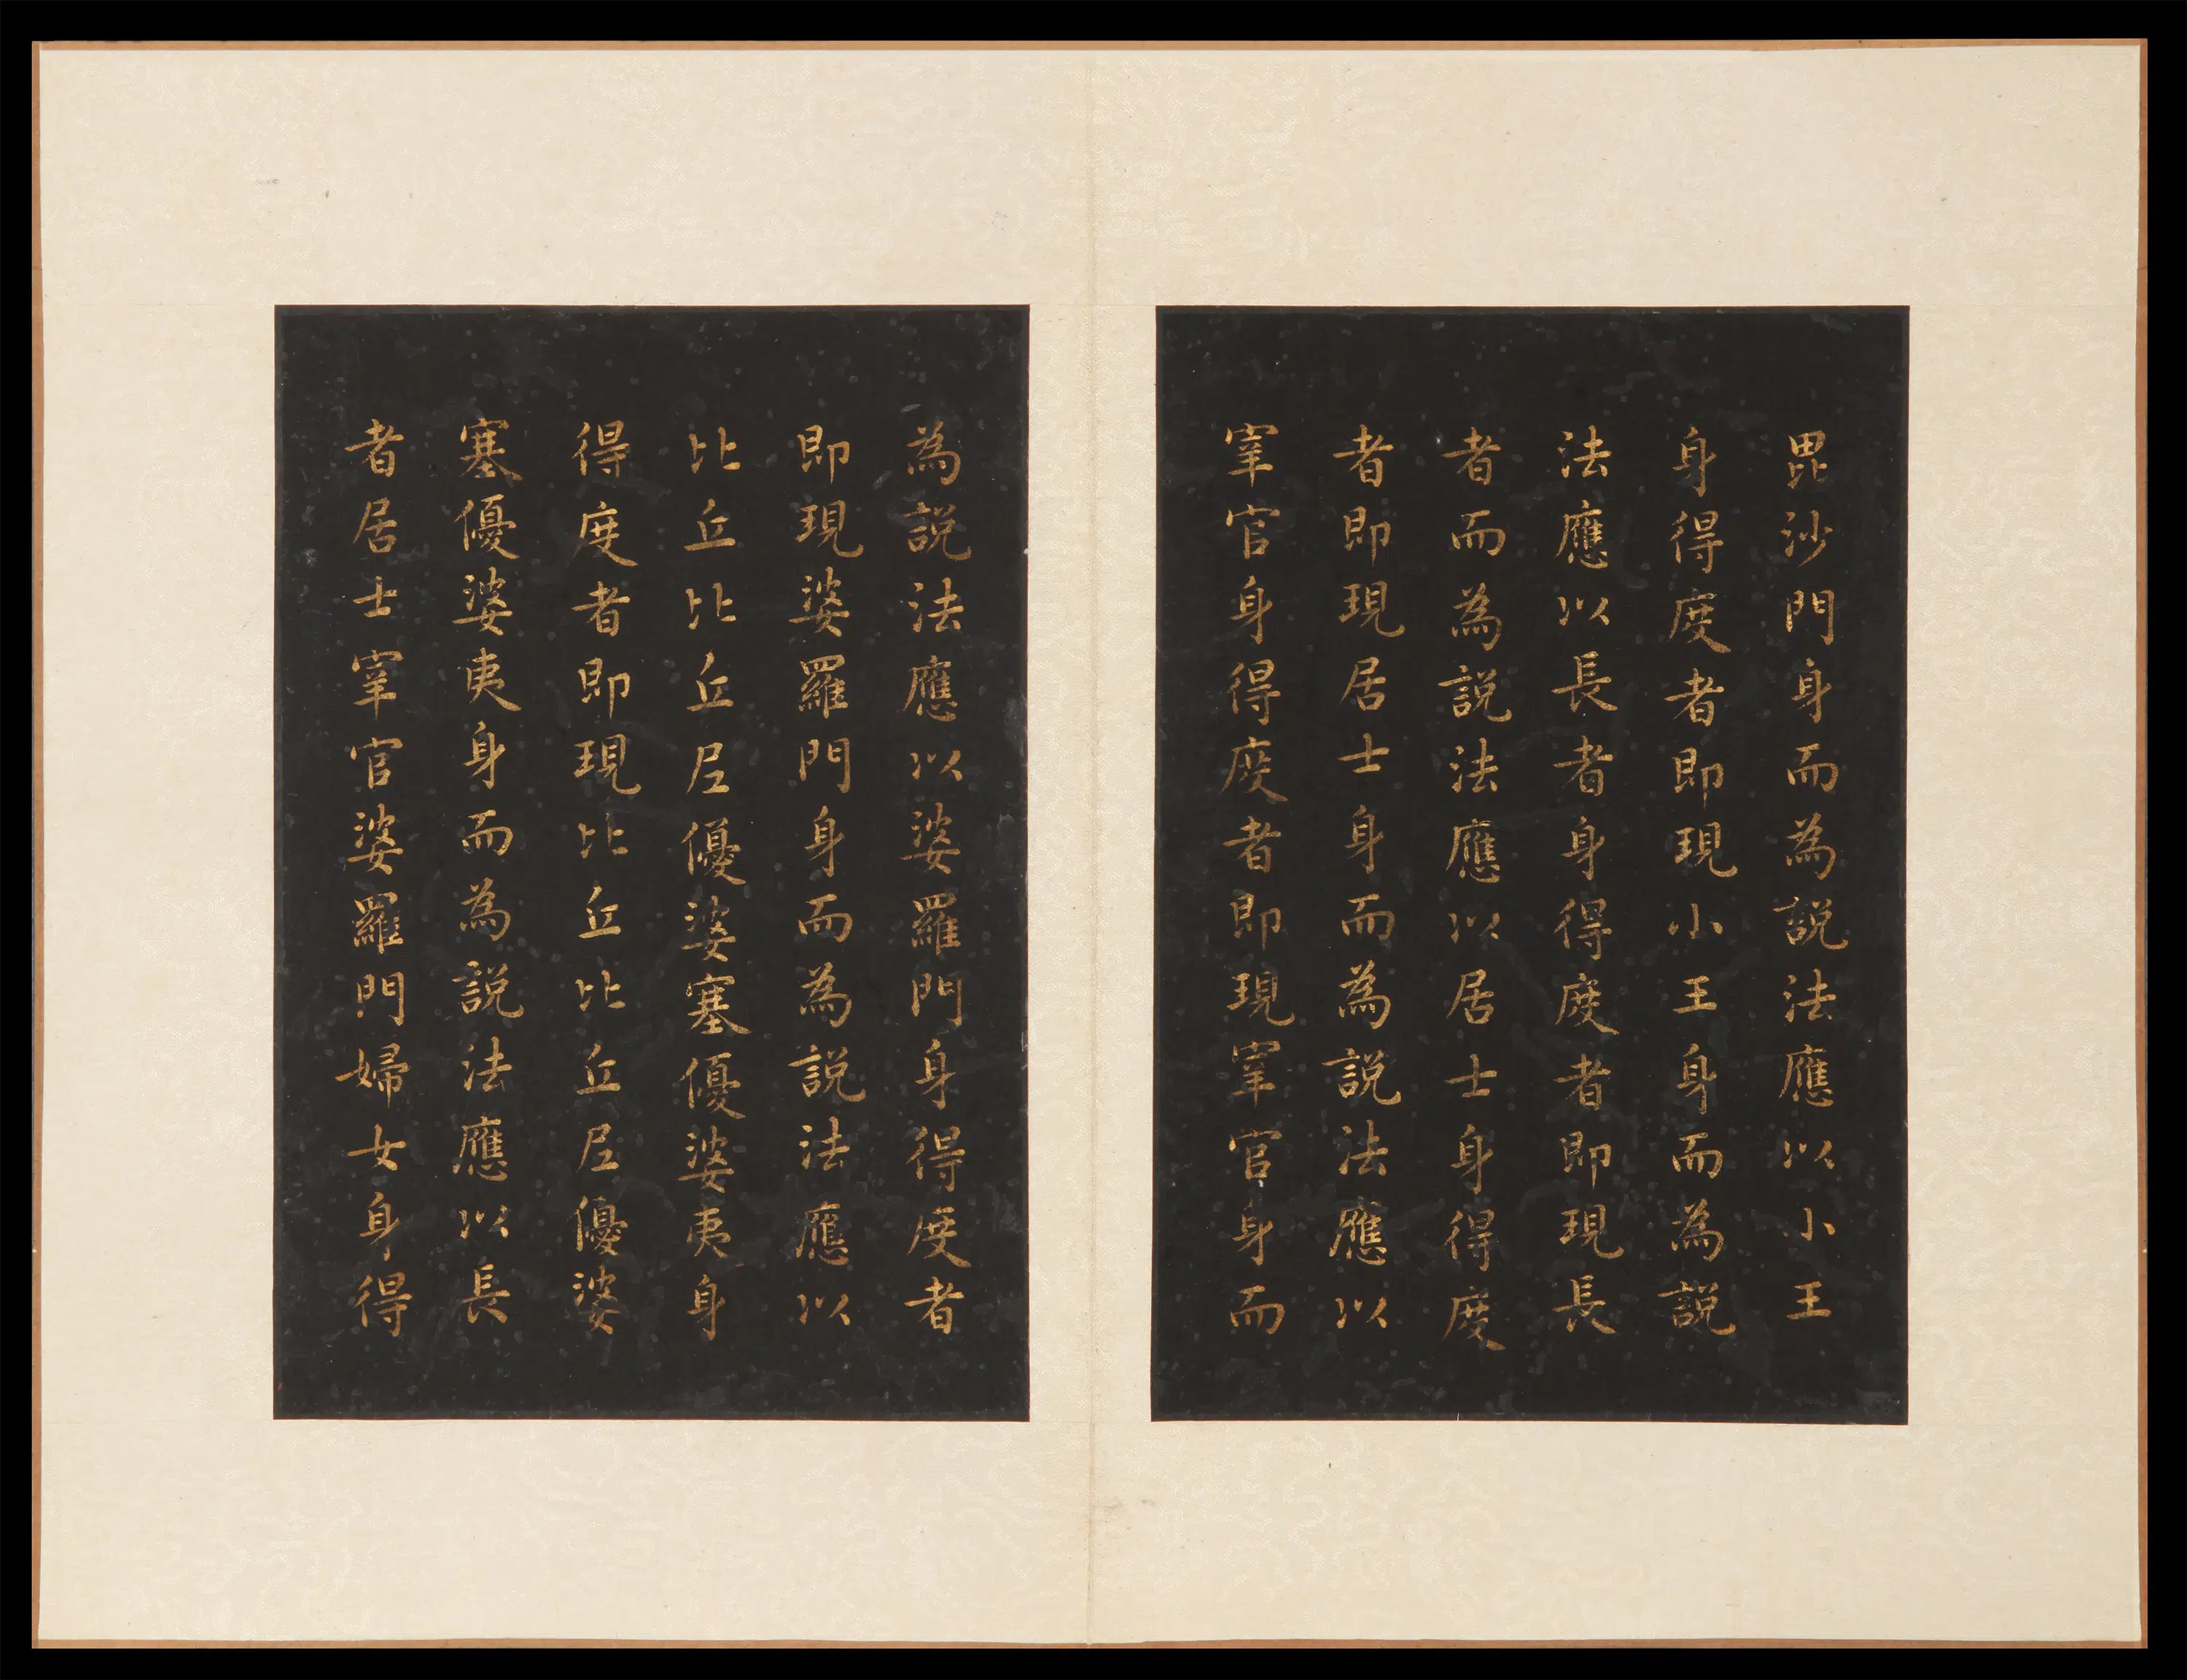 毘沙門身而為説法應以小王
身得度者即現小王身而為説
法應以長者身得度者即現長
者而為説法應以居士身得度
者即現居士身而為説法應以
宰官身得度者即現宰官身而
為説法應以婆羅門身得度者
即現婆羅門身而為説法應以
比丘比丘尼優婆塞優婆夷身
得度者即現比丘比丘尼優婆
塞優婆夷身而為説法應以長
者居士宰官婆羅門婦女身得